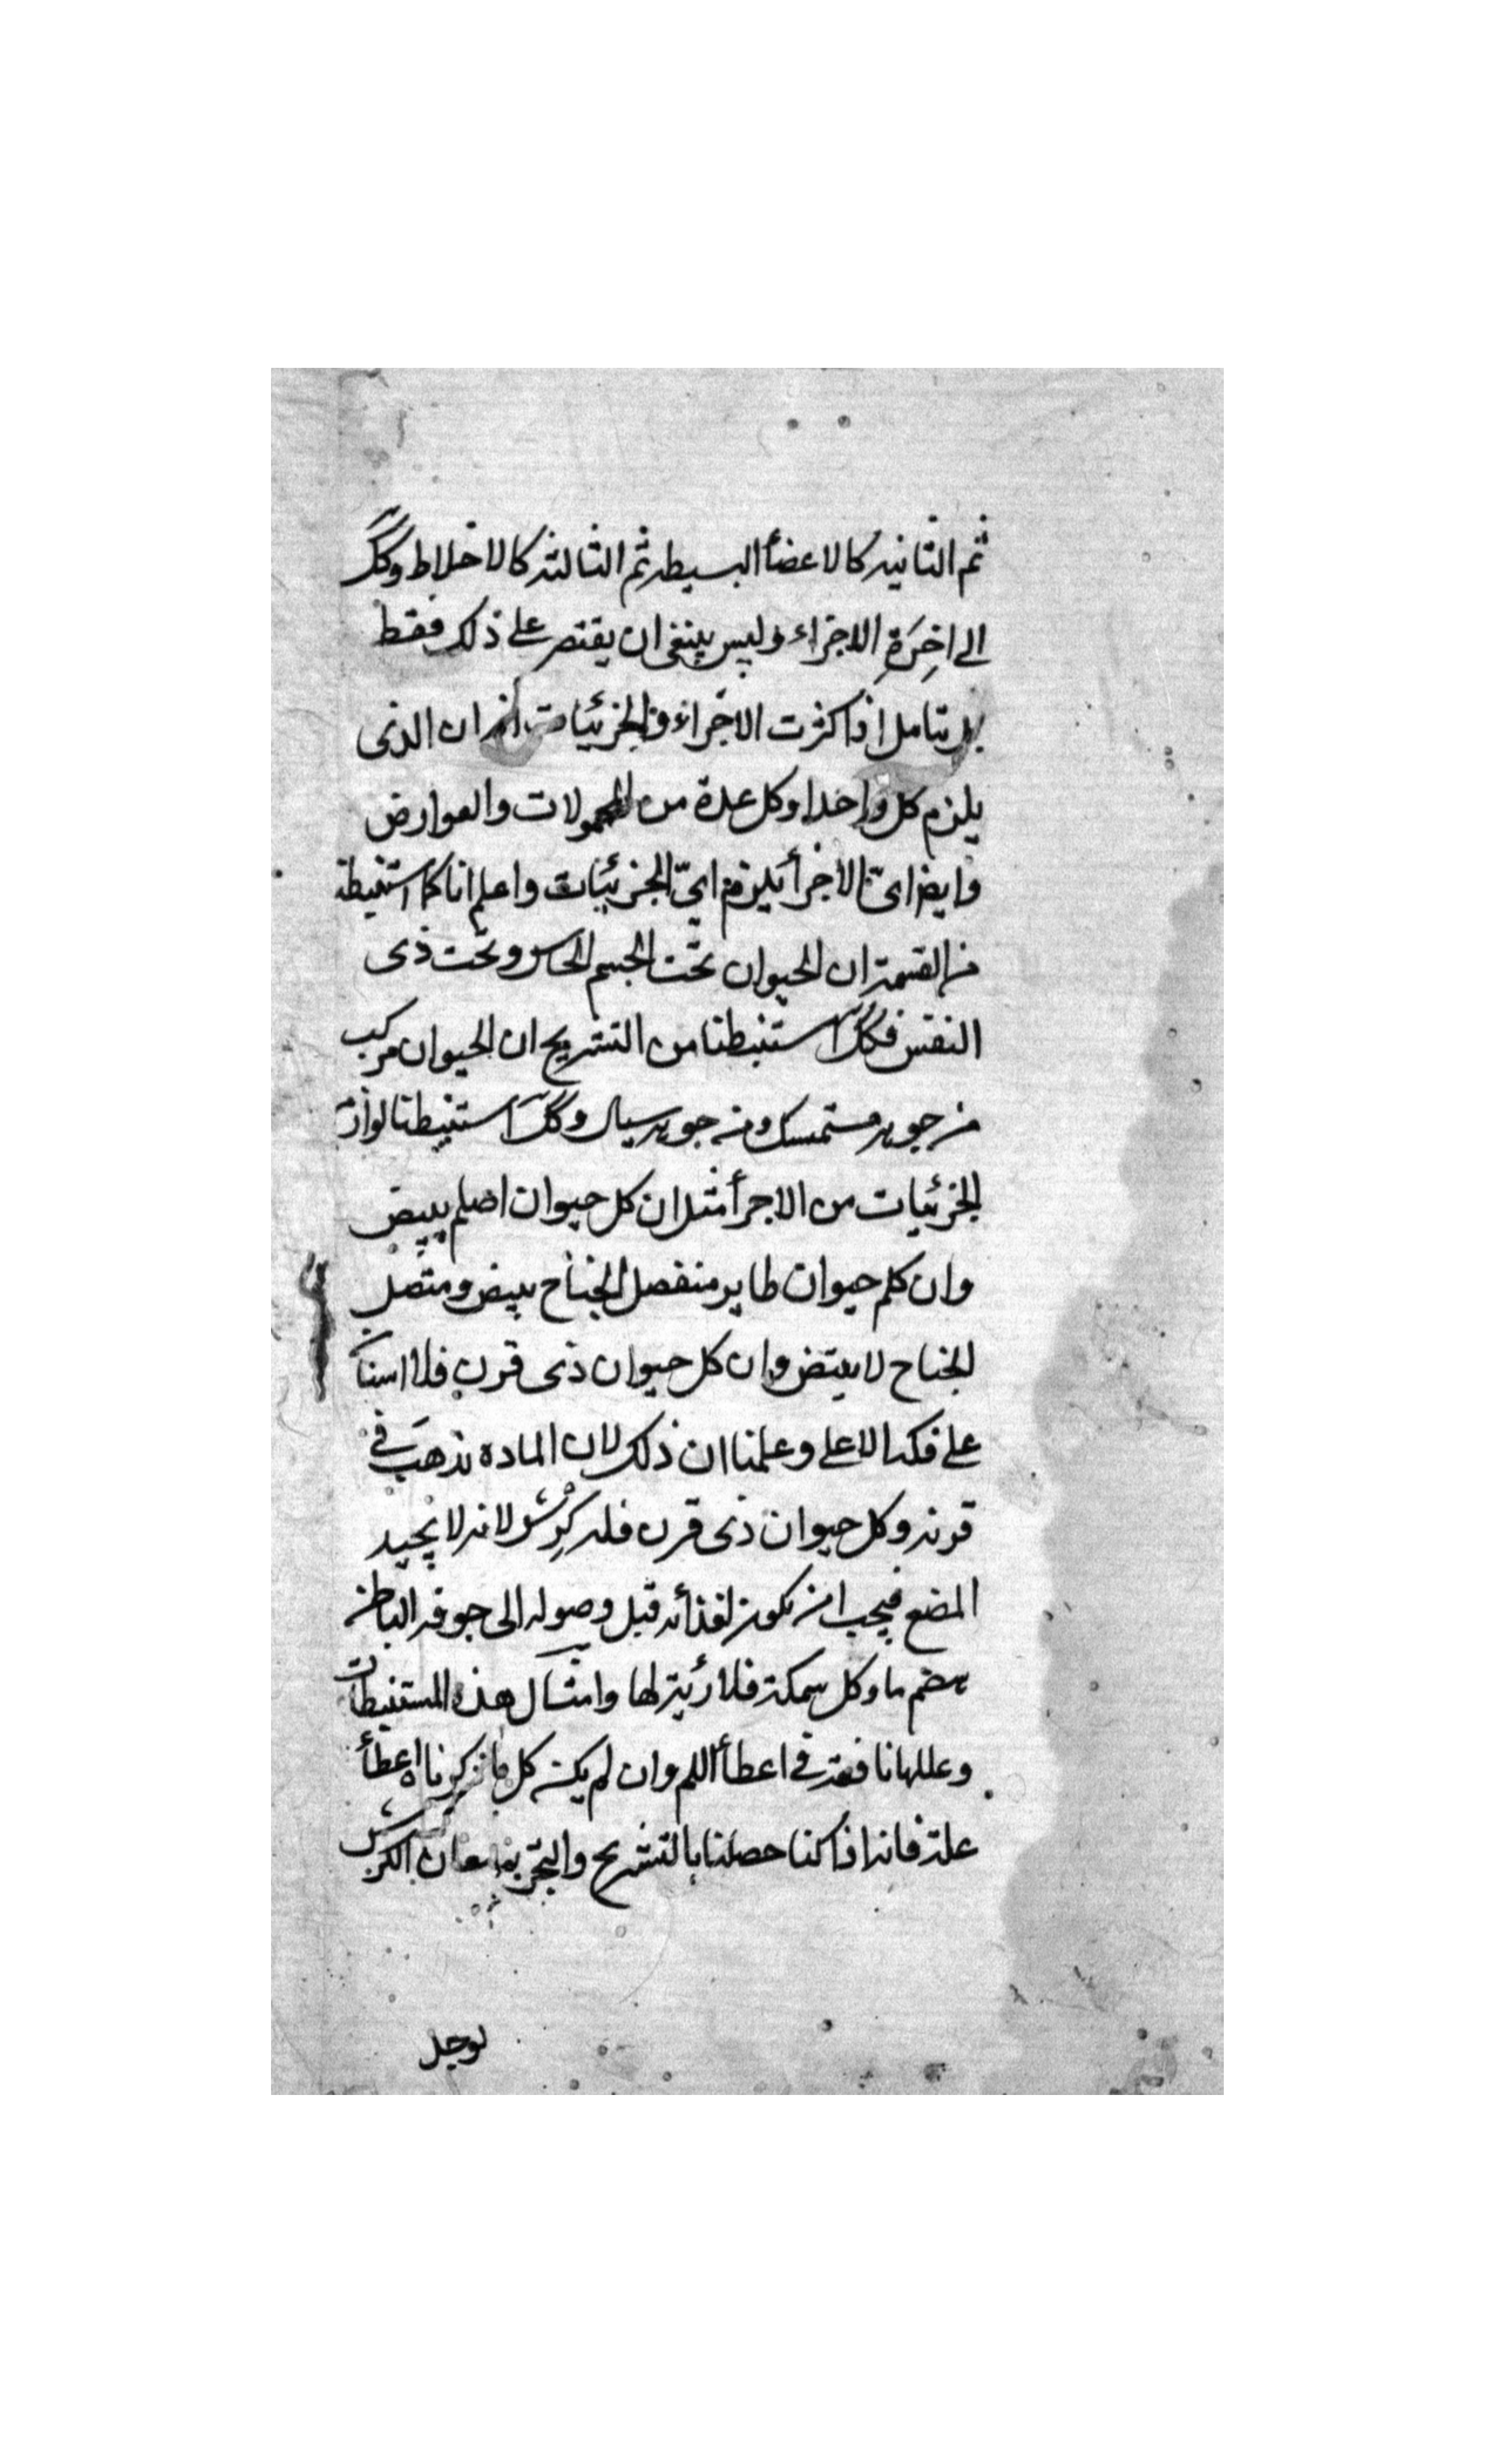 ثم الثانيه كالاعضأ البسيطه ثم الثالثه كالاخلاط وكك
الى اخِرَةِ الاجزاء وليس ينبغى ان يقتصر على ذلك فقط
بل يتامل اذا كثرت الاجزاء والجزئيات ان الذى
يلزم كل واحدا وكل عدة من المحمولات والعوارض
وايضا اىّ الاجزأ يلزم اىّ الجزئيات واعلم انا كما استنبطنا
من القسمة ان الحيوان تحت الجسم الحاس وتحت ذى
النفس فكك استنبطنا من التشريح ان الحيوان مركب
من جوهر مستمسك ومن جوهر سيال وكك استنبطنا لوازم
الجزئيات من الاجزأ مثل ان كل حيوان اصلم يبيض
وان كل حيوان طاير منفصل الجناح يبيض ومتصل
الجناح لا يبيض وان كل حيوان ذى قرن فلا اسنان
على فكه الاعلى وعلمنا ان ذلك لان الماده تذهب فى
قرنه وكل حيوان ذى قرن فله كرِش لانه لا يجيد
المضع فيجب ان يكون لغذأئه قبل وصوله الى جوفه الباطن
هضم ما وكل سمكة فلا رئية لها وامثال هذه المستنبطات
وعللها نافعة فى اعطأ اللم وان لم يكن كل ما ذكرناه اعطأ
علة فانه اذا كنا حصلنا بالتشريح والتجربة ان الكرش
لوجل